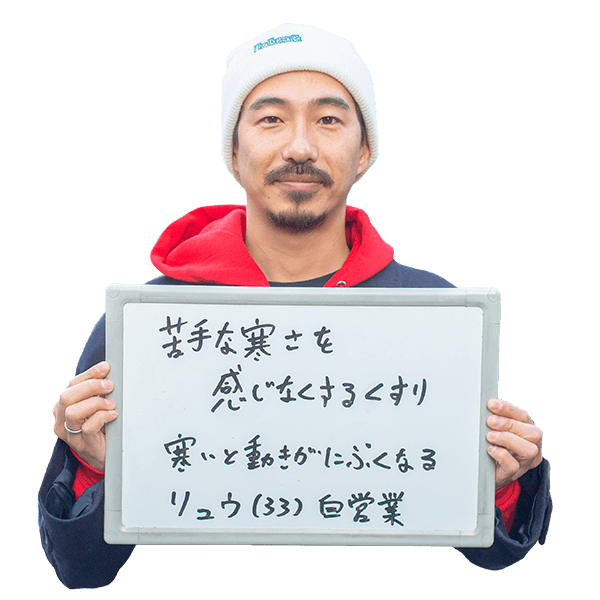 苦手な寒さを
感じなくするくすり
寒いと動きがにぶくなる
リュウ(33) 自営業